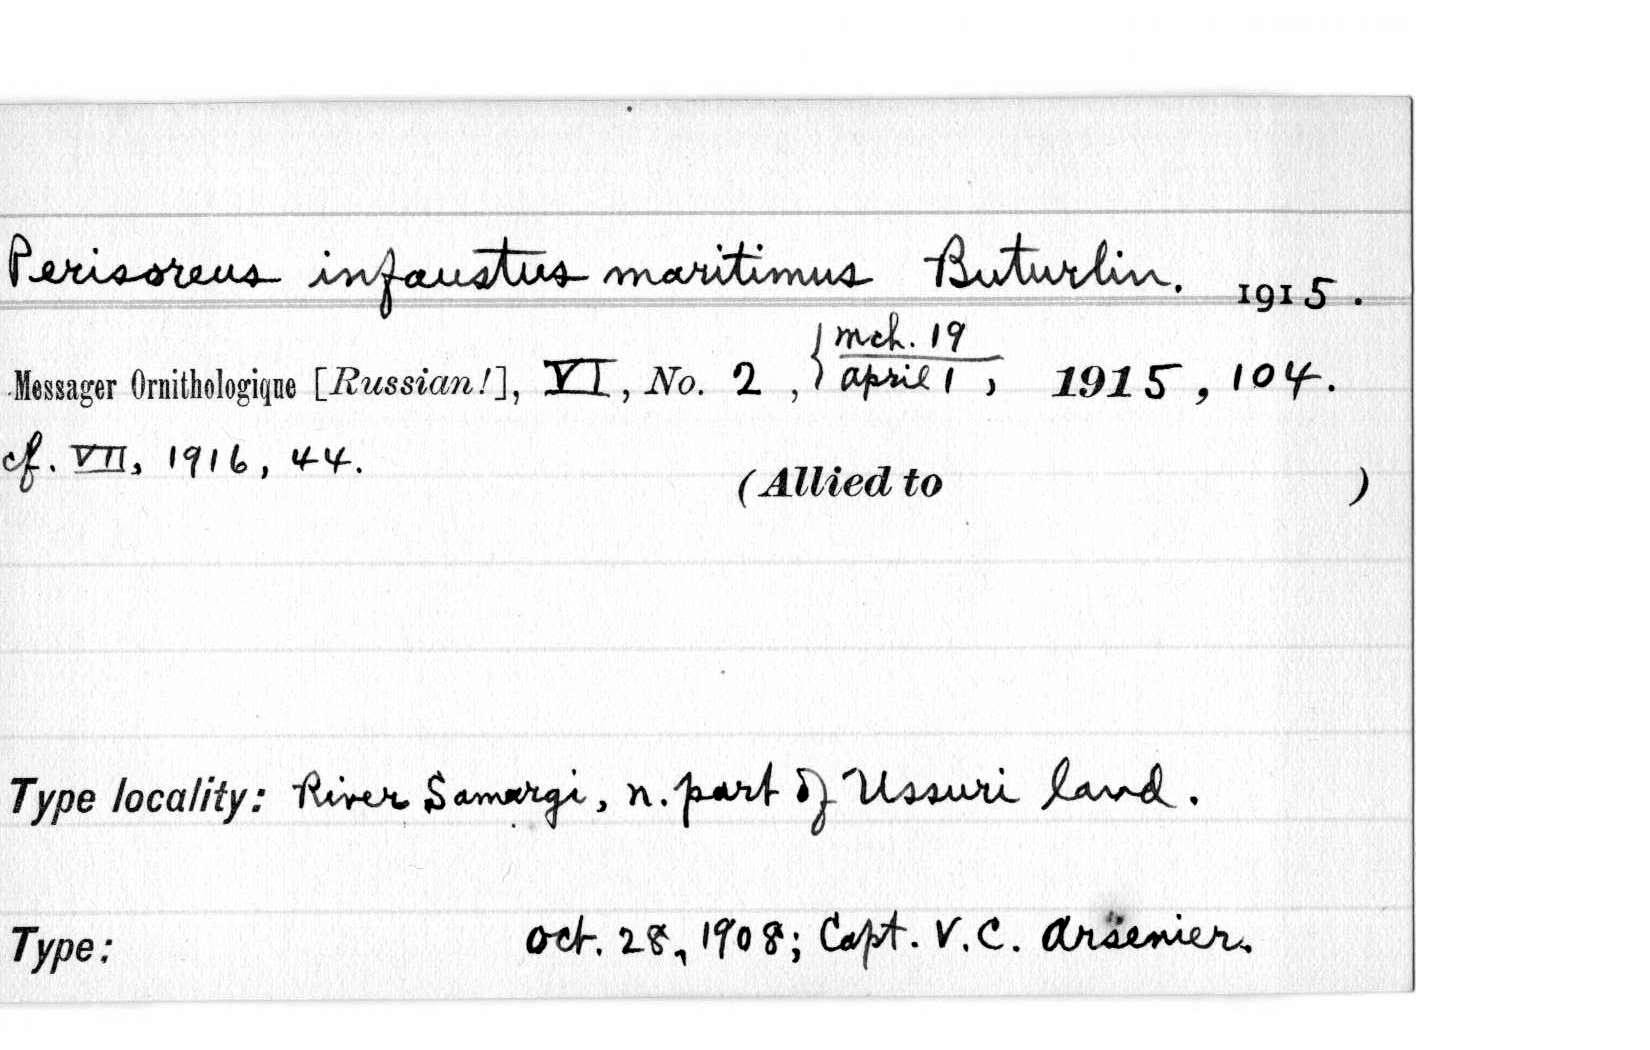 Perisoreus infaustus maritimus Buturlin. 1915.
Messager Ornithologique [Russian!], VI, No. 2, { mch. 19 / april 1, 1915, 104.
cf. VII, 1916, 44.
(Allied to )
Type locality: River Samargi, n. part of Ussuri land.
Type: Oct. 28, 1908; Capt. V. C. Arsenier.